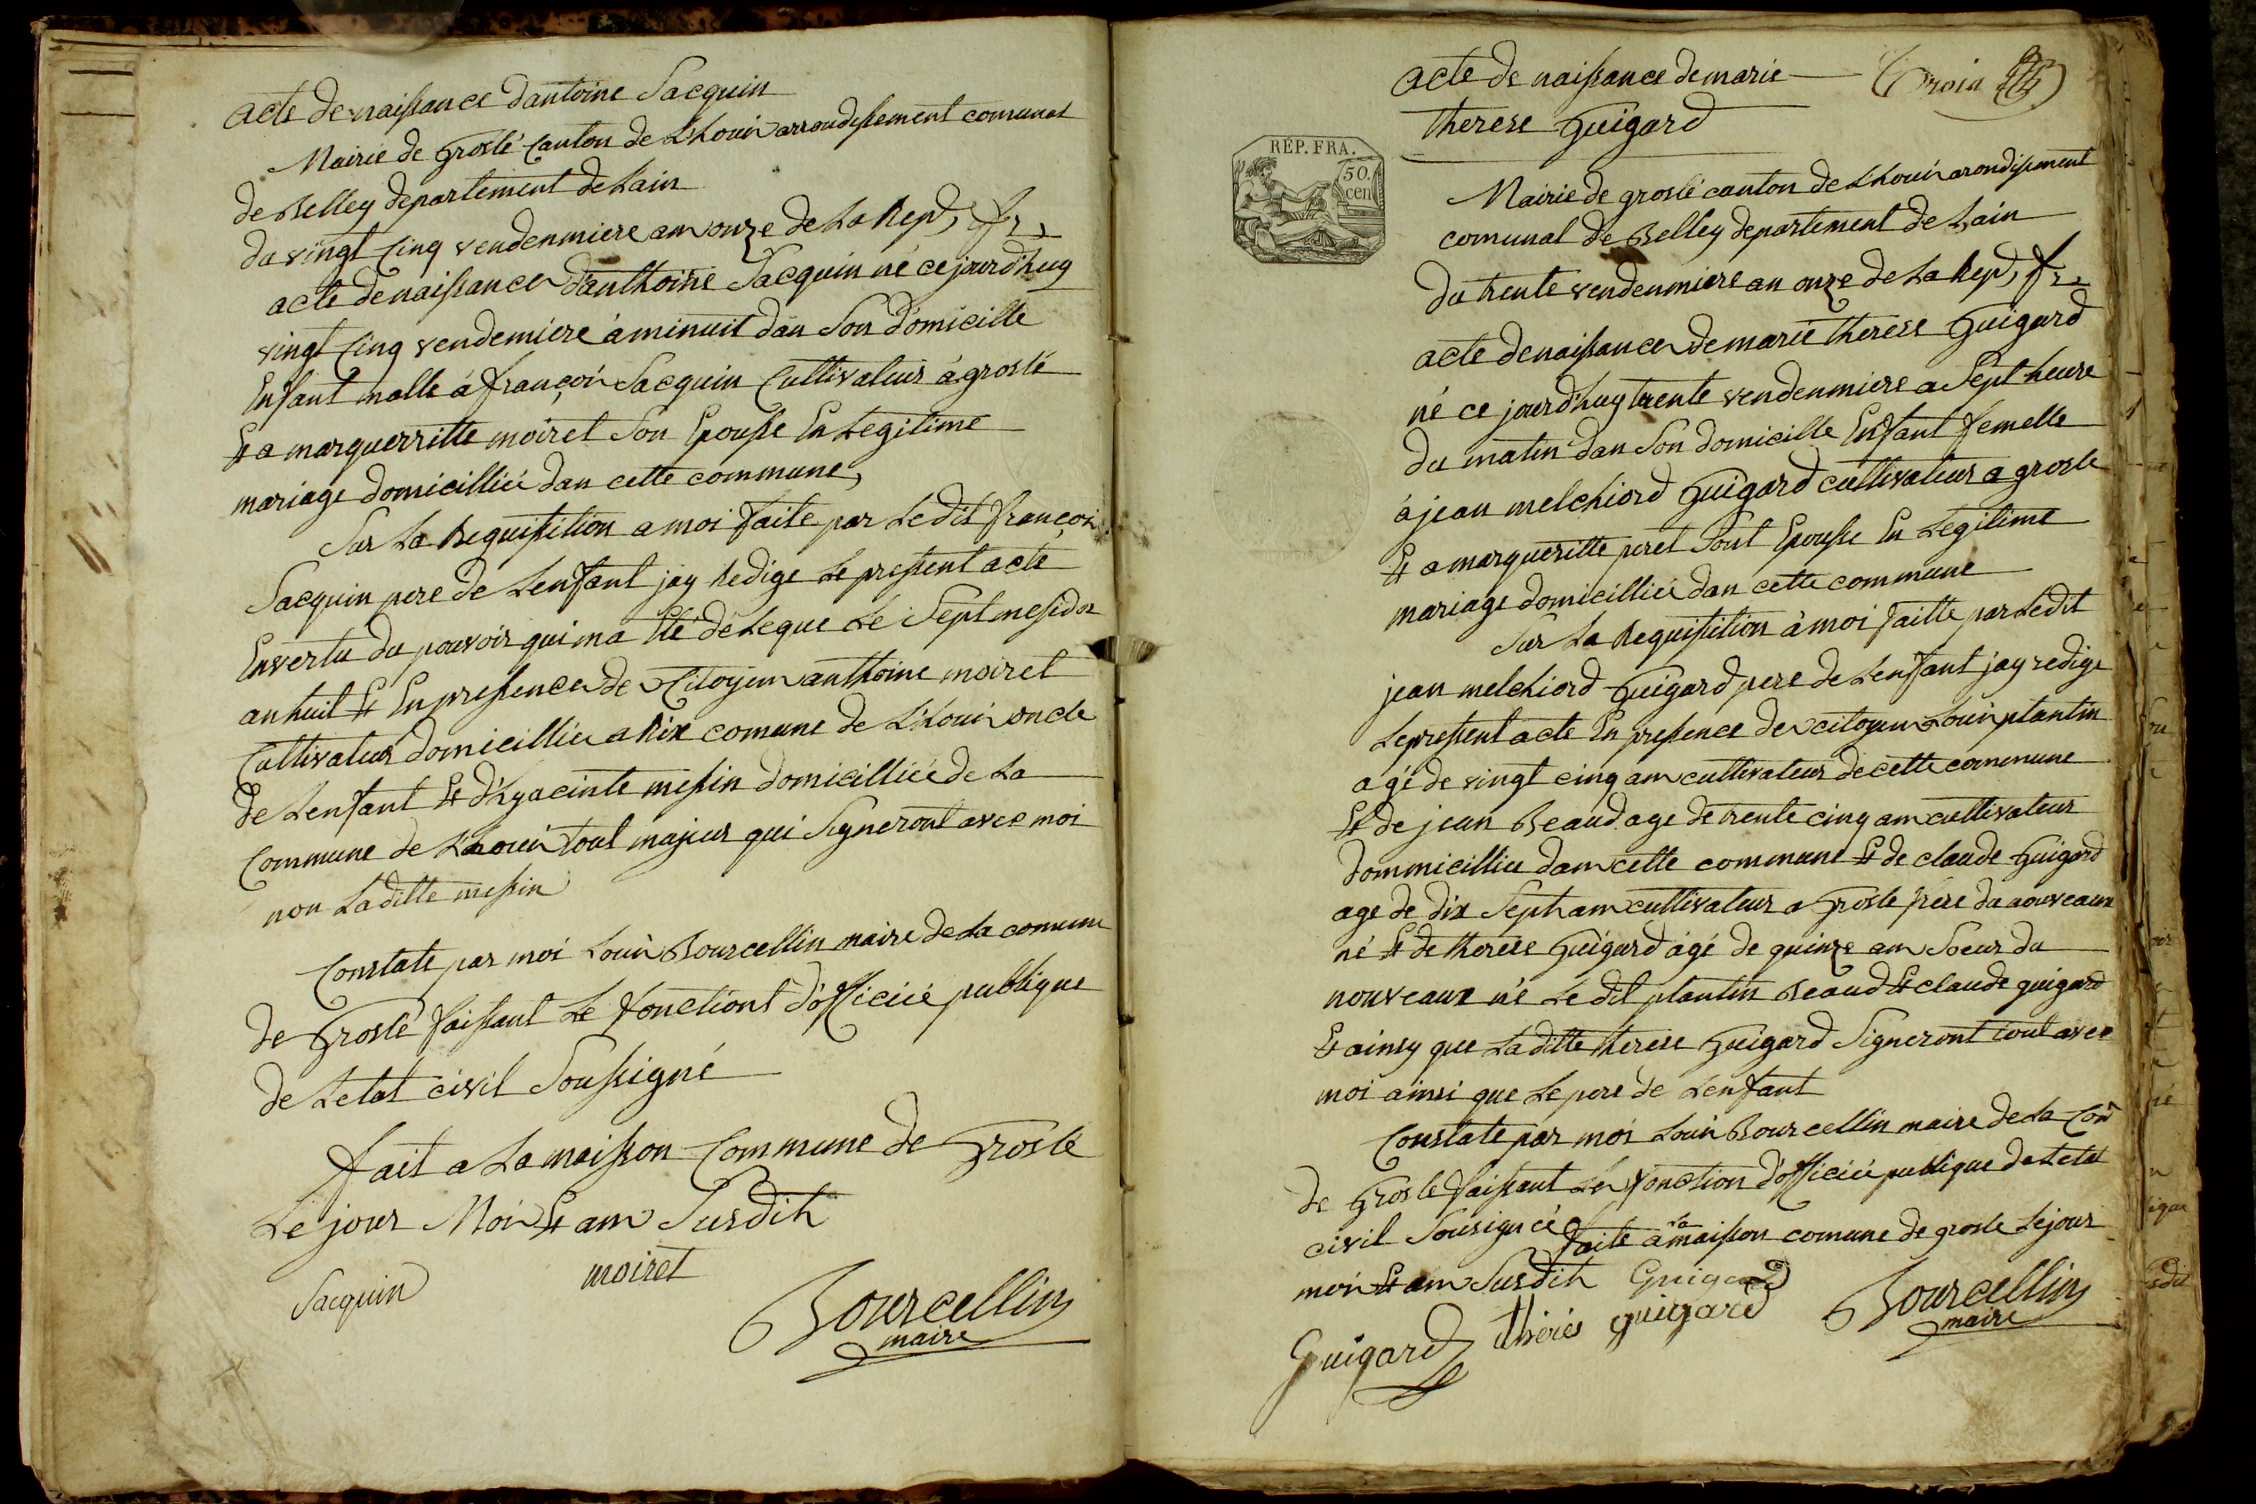 acte de naissance dantoine Jacquin
Mairie de Groslé Canton de L'houis arrondissement comunal
de Belley departement de Lain
du vingt Cinq vendenmiere an onze de La Rep, fr,
acte de naissance danthoine Jacquin né ce jourd'huy
vingt Cinq vendemiere à minuit dan Son domicille
Enfant malle à françois Jacquin Cultivateur à groslé
Et a marguerritte moiret Son Epousse En Legitime
mariage domicilliée dan cette commune,
Sur La Requisition a moi faite par Ledit françois
Jacquin pere de Lenfant jay Redige Le pressent acte
En vertu du pouvoir qui ma Eté deleque Le Sept messidor
an huit Et En pressence de Citoyen anthoine moiret
Cultivateur domicillie a Rix comune de L'houis oncle
de Lenfant Et d'hyacinte messin domicilliée de La
Commune de Lhouis tout majeur qui Signeront avec moi
non Laditte messin
Constate par moi Louis Bourcellin maire de La comune
de Groslé faissant Le fonctions d'officiée publique
de Letat civil Soussigné
fait a La maisson Commune de Groslé
Le jour Mois Et an Susdits
Jacquin
moiret
Bourcellin
maire
acte de naissance de marie
therese Guigard
Trois
RÉP. FRA.
50.
cen
Mairie de groslé canton de Lhouis arondissement
comunal de Belley departement de Lain
du trente vendenmiere an onze de La Rep, fr,
acte de naissance de marie therese Guigard
né ce jourd'huy trente vendenmiere a Sept heure
du matin dan Son domicille Enfant femelle
à jean melchiord Guigard cultivateur a grosle
Et a margueritte peret Sont Epousse En Legitime
mariage domicilliée dan cette commune
Sur La Requisition à moi faitte par Ledit
jean melchiord Guigard pere de Lenfant jay redige
Le pressent acte En pressence de citoyen Louis plantin
agé de vingt cinq ans cultivateur de cette commune
Et de jean Beaud age de trente cinq ans cultivateur
dommicillie dans cette commune Et de claude Guigard
age de dix Sept ans cultivateur a Grosle frere du nouveaux
né Et de therese Guigard agé de quinze ans Soeur du
nouveaux né Le dit plantin Beaud Et claude guigard
Et ainsy que Laditte therese Guigard Signeront tout avec
moi ainsi que Le pere de Lenfant
Constate par moi Louis Bourcellin maire de La Com
de Grosle faissant Les fonction d'officiée publique de Letat
civil Sousignée faite a la maisson comune de grosle Le jour
mois Et an Susdits Guigard
Guigard
thérés guigard
Bourcellin
maire